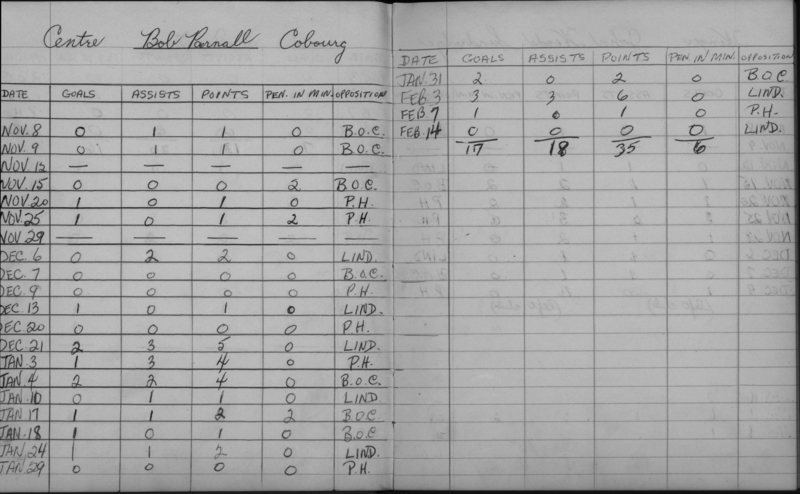 Centre Bob Parnall Cobourg
DATE GOALS ASSISTS POINTS PEN. IN MIN. OPPOSITION
NOV. 8 0 1 1 0 B.O.C.
NOV. 9 0 1 1 0 B.O.C.
NOV. — — — — —
NOV. 15 0 0 0 2 B.O.C.
NOV. 20 1 0 1 0 P.H.
NOV. 25 1 0 1 2 P.H.
NOV. 29 — — — — —
DEC. 6 0 2 2 0 LIND.
DEC. 7 0 0 0 0 B.O.C.
DEC. 9 0 0 0 0 P.H.
DEC. 13 1 0 1 0 LIND.
DEC. 20 0 0 0 0 P.H.
DEC. 21 2 3 5 0 LIND.
JAN. 3 1 3 4 0 P.H.
JAN. 4 2 2 4 0 B.O.C.
JAN. 10 0 1 1 0 LIND
JAN. 17 1 1 2 2 B.O.C
JAN. 18 1 0 1 0 B.O.C
JAN. 24 1 1 2 0 LIND.
JAN. 29 0 0 0 0 P.H.
DATE GOALS ASSISTS POINTS PEN IN MIN. OPPOSITION
JAN. 31 2 0 2 0 B.O.C
FEB. 3 3 3 6 0 LIND.
FEB. 7 1 0 1 0 P.H.
FEB. 14 0 0 0 0 LIND.
17 18 35 6